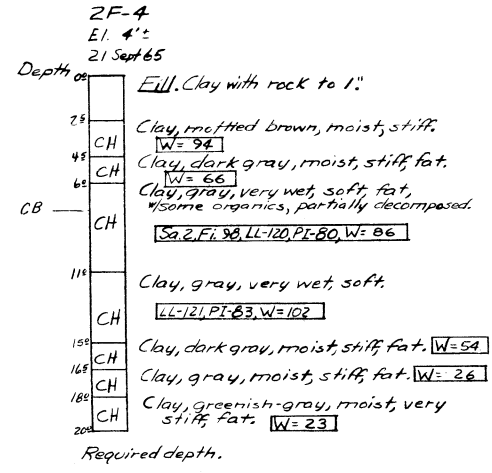 2F-4
El. 4'±
21 Sept 65
Depth
0.0
Fill. Clay with rock to 1".
2.5
Clay, mottled brown, moist, stiff.
CH
W= 94
4.5
Clay, dark gray, moist, stiff, fat.
CH
W= 66
6.0
Clay, gray, very wet, soft, fat,
w/some organics, partially decomposed.
CB
CH
Sa.2, Fi.98, LL-120, PI-80, W= 86
11.0
Clay, gray, very wet, soft.
LL-121, PI-83, W=102
CH
15.0
Clay, dark gray, moist, stiff, fat. W=54
CH
16.5
Clay, gray, moist, stiff, fat. W= 26
CH
18.0
Clay, greenish-gray, moist, very
stiff, fat. W= 23
CH
20.0
Required depth.